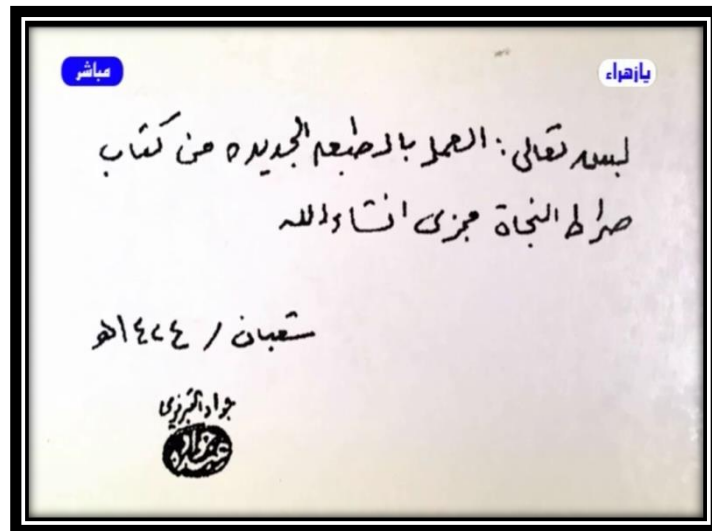 يازهراء
مباشر
بسمه تعالى: العمل بالطبعه الجديده من كتاب
صراط النجاة مجزى انشاءالله
شعبان / ١٤٢٤هـ
جواد التبريزى